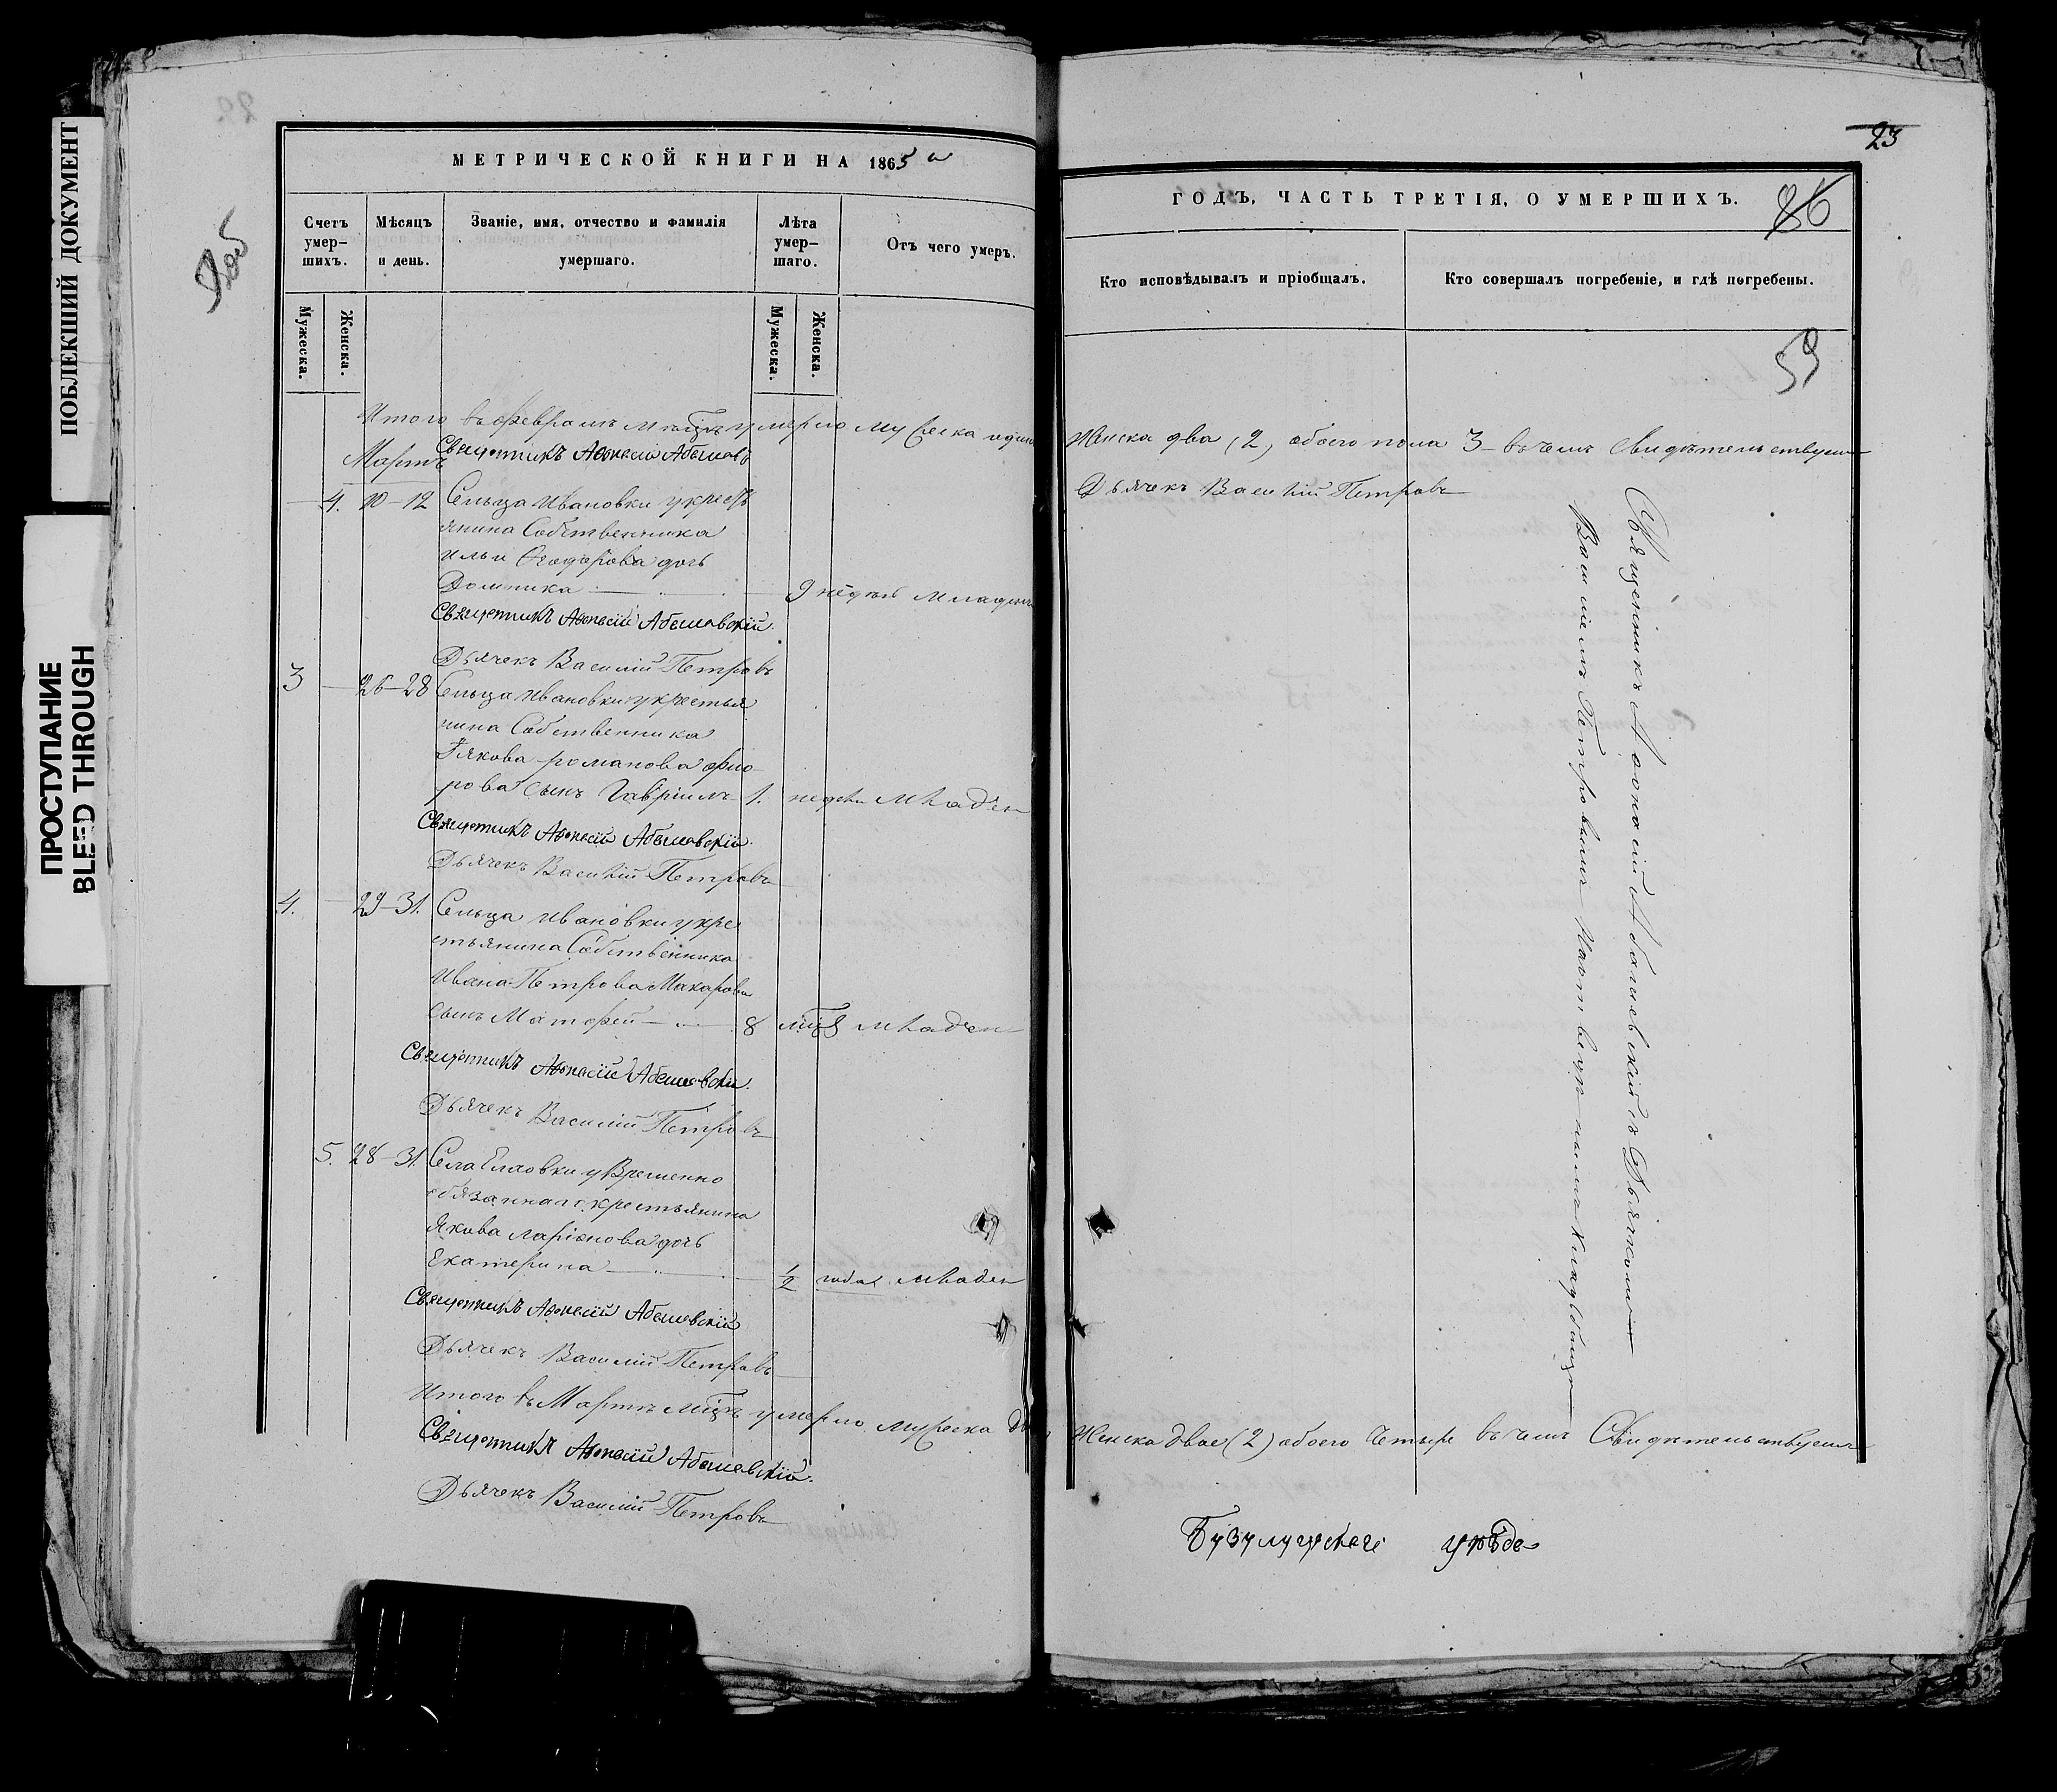 ПОБЛЕКШИЙ ДОКУМЕНТ
ПРОСТУПАНИЕ
BLEED THROUGH
МЕТРИЧЕСКОЙ КНИГИ НА 1865 й
Счетъ умер-шихъ.
Мѣсяцъ и день.
Званіе, имя, отчество и фамилія умершаго.
Лѣта умер-шаго.
Отъ чего умеръ.
Мужеска.
Женска.
Мужеска.
Женска.
Итого въ Февралѣ мѣцѣ умерло мужеска одинъ
Мартъ Священникъ Аѳонасій
4. 10-12 Сельца Ивановки у крестъ
янина Собственника
Ильи Ѳеодорова дочь
Домника 9 недѣль младенч
Священникъ Аѳонасій Абалмавскій
Дьячекъ Василій Петровъ
3 26-28 Сельца Ивановки у крестья
нина Собственника
Іякова Романова Фио
рова сынъ Гавріилъ 1. недели младен
Священникъ Аѳонасій
Дьячекъ Василій Петровъ
4. 29-31. Сельца Ивановки у кре
стьянина Собственника
Ивана Петрова Макарова
сынъ Матфей 8 мцъ младен
Священникъ Аѳонасій
Дьячекъ Василій Петровъ
5. 28-31 Села Елховки у Временно
обязаннаго крестьянина
Якова Ларіонова дочь
Екатерина 1/2 года младен
Священникъ Аѳонасій
Дьячекъ Василій Петровъ
Итого въ Мартѣ мцѣ умерло мужеска
Священникъ Аѳонасій
Дьячекъ Василій Петровъ
23
ГОДЪ, ЧАСТЬ ТРЕТІЯ, О УМЕРШИХЪ.
86
Кто исповѣдывалъ и пріобщалъ.
Кто совершалъ погребеніе, и гдѣ погребены.
59
Женска два (2) обоего пола 3 въ чемъ Свидѣтельствуемъ
Дьячекъ Василій Петровъ
Священникъ Аѳонасій съ Дьячкомъ
Василіемъ Петровымъ на
Женска двое (2) обоего четыре въ чемъ Свидѣтельствуемъ
Бузулуцскаго уѣзда